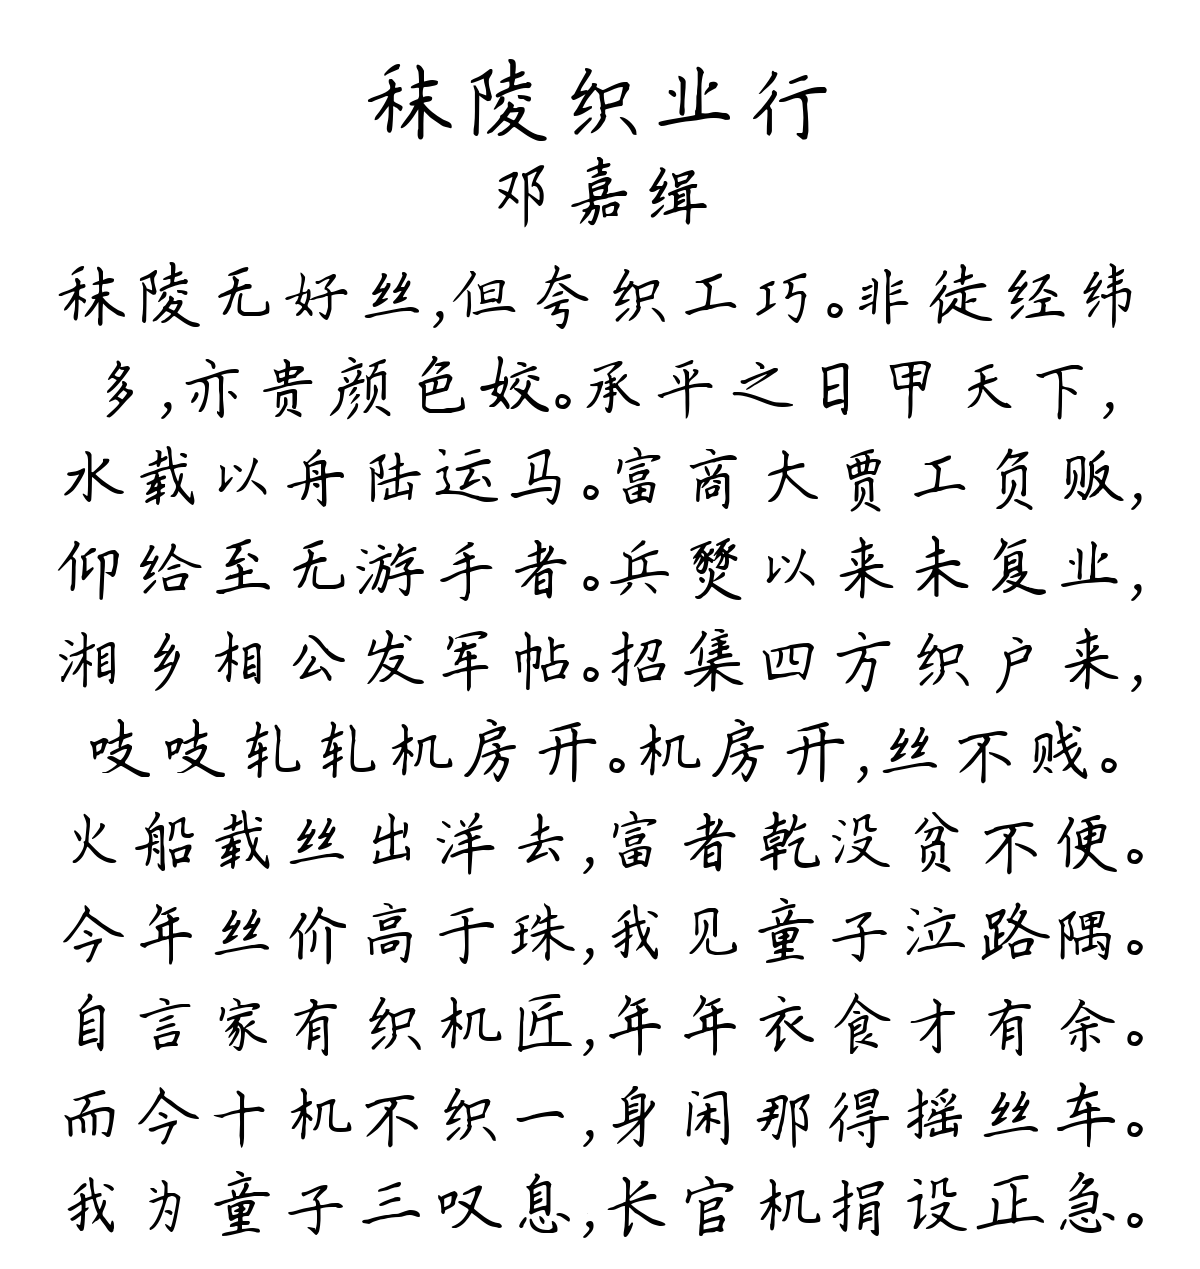 秣陵织业行
邓嘉缉
秣陵无好丝,但夸织工巧。非徒经纬
多,亦贵颜色姣。承平之日甲天下,
水载以舟陆运马。富商大贾工负贩,
仰给至无游手者。兵燹以来未复业,
湘乡相公发军帖。招集四方织户来,
吱吱轧轧机房开。机房开,丝不贱。
火船载丝出洋去,富者乾没贫不便。
今年丝价高于珠,我见童子泣路隅。
自言家有织机匠,年年衣食才有余。
而今十机不织一,身闲那得摇丝车。
我为童子三叹息,长官机捐设正急。